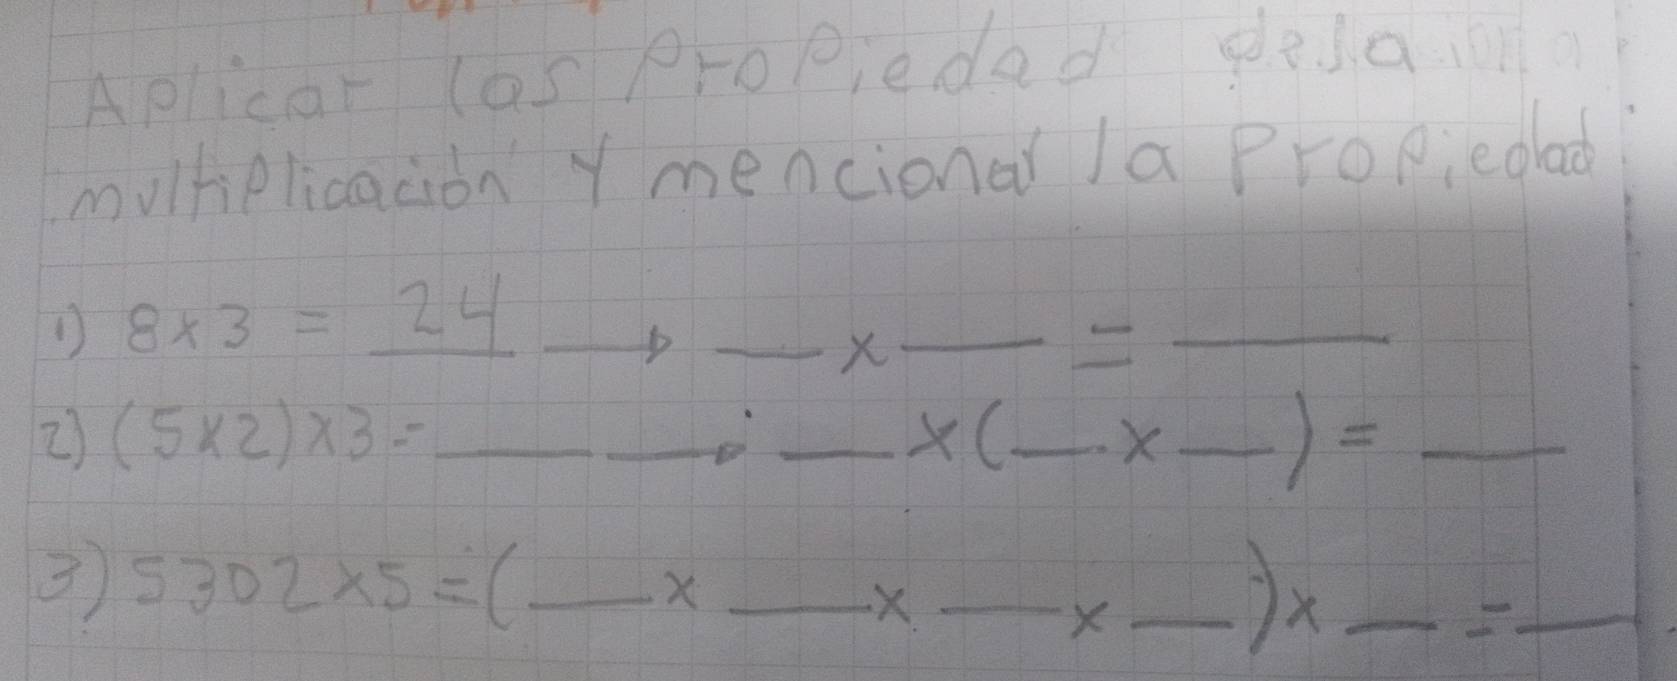 Aplicar las Propiedad de la
multiplicación y mencionar la Propiedad
1) 8x3 = 24 → ___ x ___ = ___
2) (5x2)x3 = ___ → ___ x (___ x ___) = ___
3) 5302x5 = (___ x ___ x ___ x ___) x ___ = ___